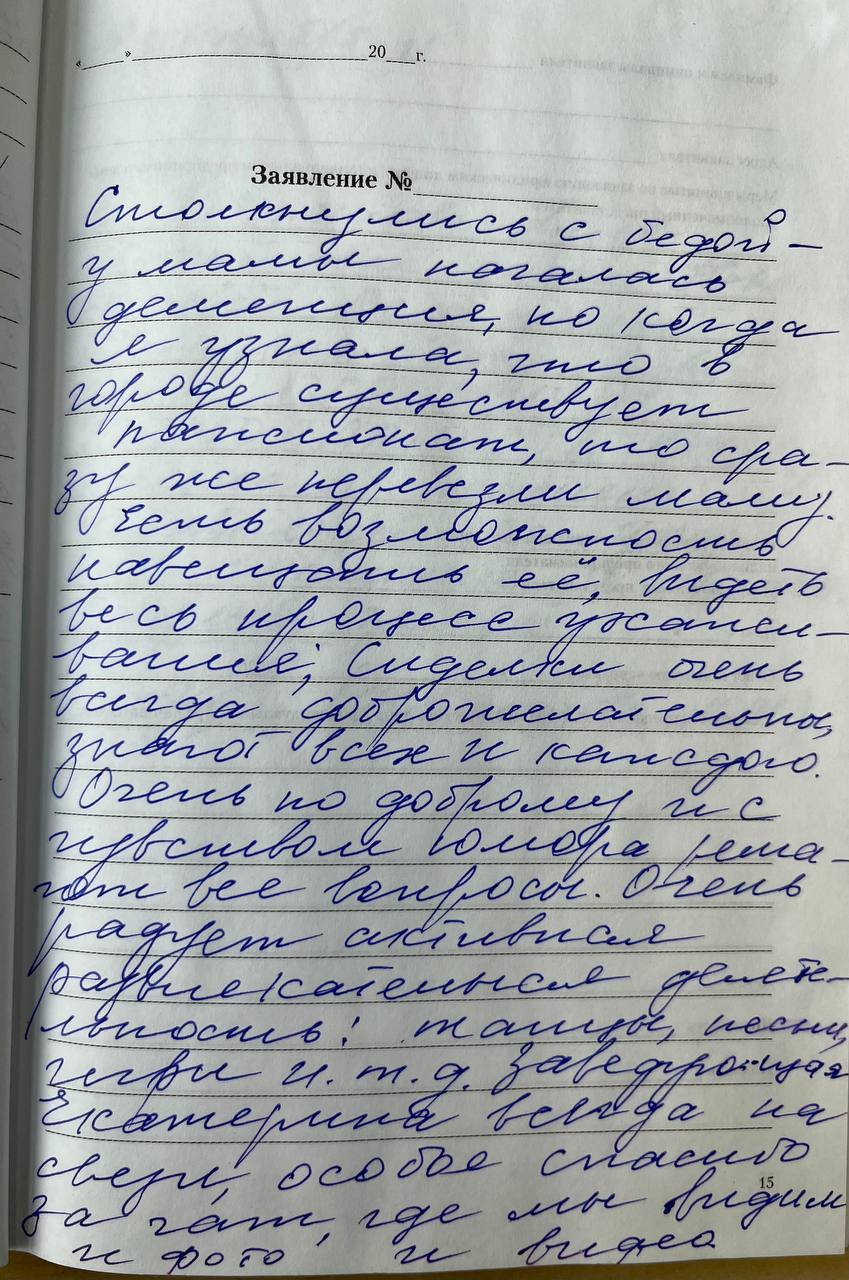 «____»____________________20___г.
Заявление №____________
Столкнулись с бедой –
у мамы началась
деменция, но когда
я узнала, что в
городе существует
пансионат, то сра-
зу же перевезли маму.
Есть возможность
навещать её, видеть
весь процесс ухажи-
вания; Сиделки очень
всегда доброжелательны,
знают всех и каждого.
Очень по доброму и с
чувством юмора реша-
ют все вопросы. Очень
радует активная
развлекательная деяте-
льность: танцы, песни,
игры и.т.д. Заведующая
Екатерина всегда на
связи, особое спасибо
за чат, где мы видим
и фото и видео
15